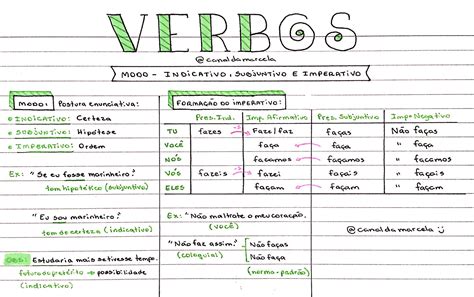 VERBOS
@canaldamarcela
MODO - INDICATIVO, SUBJUNTIVO E IMPERATIVO
MODO: Postura enunciativa:
INDICATIVO: Certeza
SUBJUNTIVO: Hipótese
IMPERATIVO: Ordem
Ex: "Se eu fosse marinheiro."
tom hipotético (subjuntivo)
"Eu sou marinheiro."
tom de certeza (indicativo)
OBS: Estudaria mais se tivesse tempo.
futuro do pretérito → possibilidade
(indicativo)
FORMAÇÃO DO IMPERATIVO:
Pres. Ind. Imp. Afirmativo Pres. Subjuntivo Imp. Negativo
TU fazes -s Faz/faz faças Não faças
VOCÊ faça faça " faça
NÓS façamos façamos " façamos
VÓS fazeis -s fazei façais " façais
ELES façam façam " façam
Ex: "Não maltrate o meu coração."
(você)
"Não faz assim."
(coloquial)
Não faças
Não faça
(norma-padrão)
@canaldamarcela :)